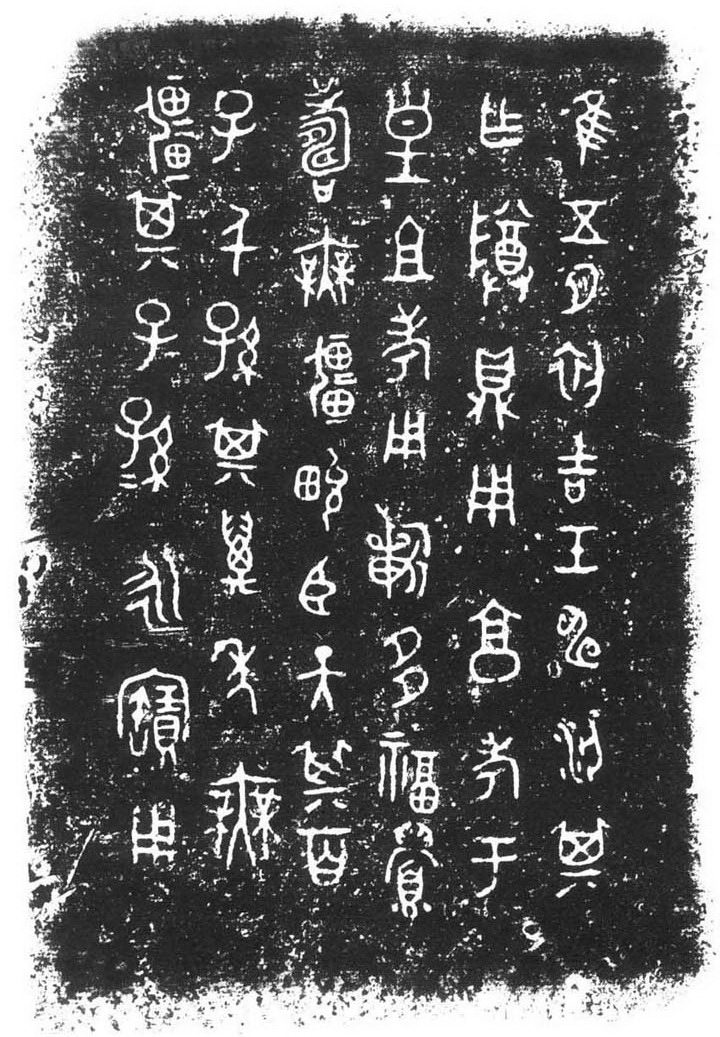 隹五月初吉壬申汈其
乍𨺅鼎用享考于
皇且考用𣄨多福眉
壽無疆畯臣天其百
子千孫其萬年無
疆其子孫永寶用